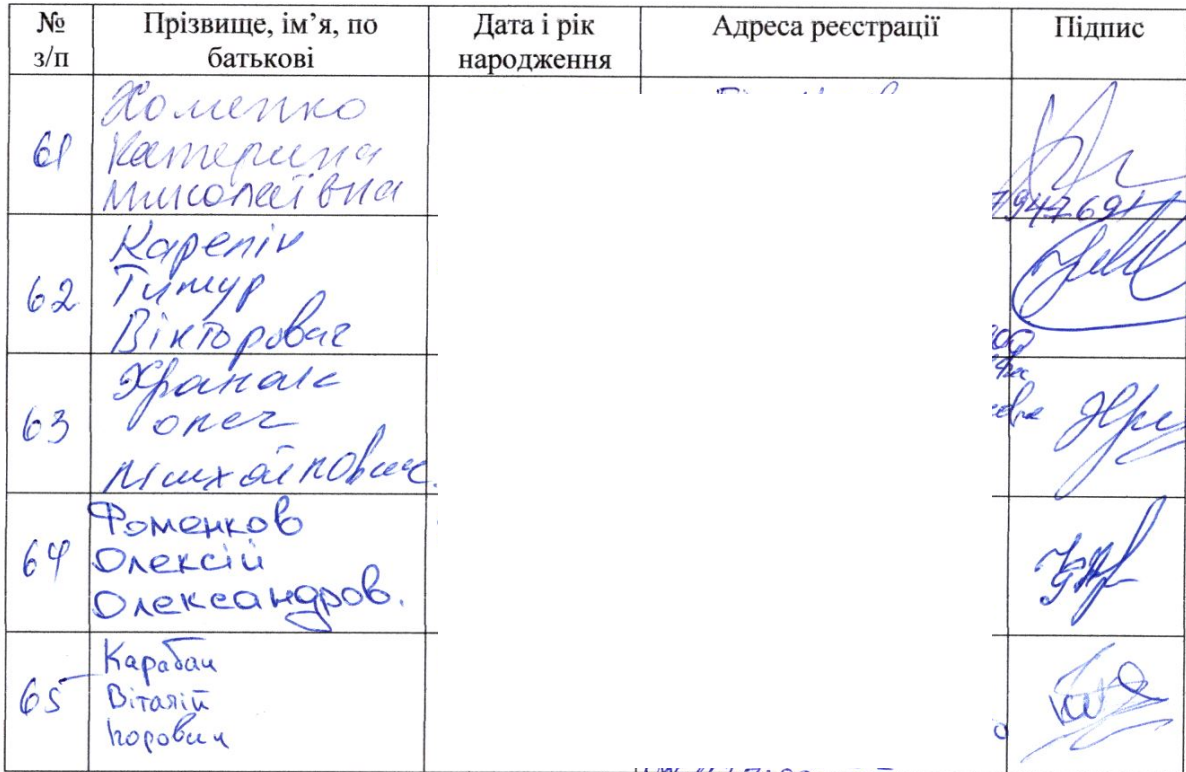 № з/п
Прізвище, ім’я, по батькові
Дата і рік народження
Адреса реєстрації
Підпис
61
Хоменко
Катерина
Миколаївна
62
Карепін
Тимур
Вікторович
63
Олег
Михайлович
64
Фоменков
Олексій
Олександров.
65
Карабан
Віталій
Ігорович